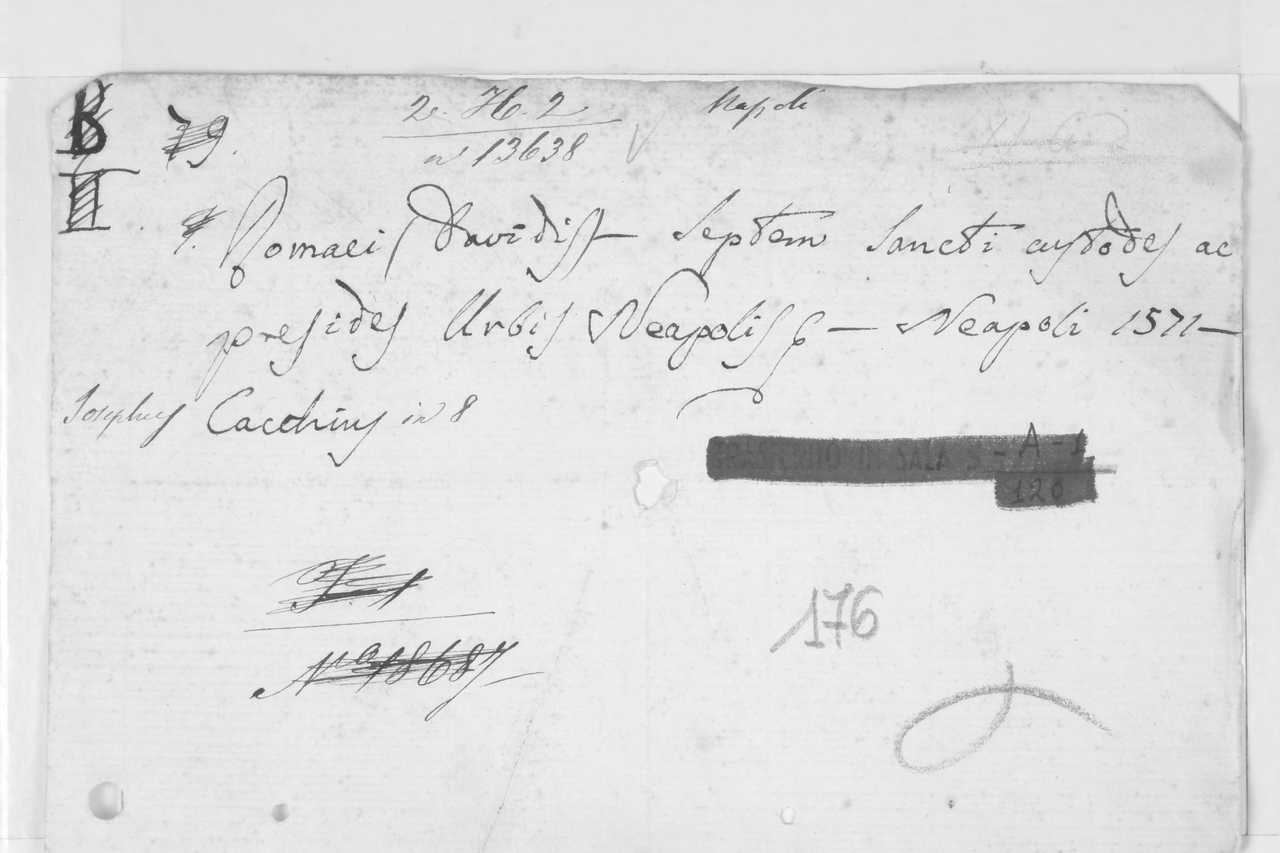 B 79. 2. H. 2 Napoli
nº 13638
II.
Romaei Davidis — Septem Sancti custodes ac
presides Urbis Neapolis — Neapoli 1571 —
Josephus Cacchius in 8
TRASFERITO IN SALA S - A - 1
120
I. 1
176
Nº 18687